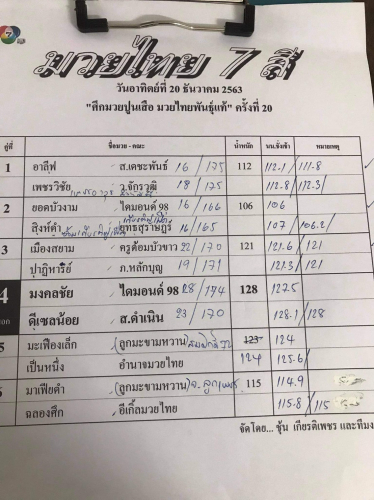 7
มวยไทย 7 สี
วันอาทิตย์ที่ 20 ธันวาคม 2563
"ศึกมวยปูนเสือ มวยไทยพันธุ์แท้" ครั้งที่ 20
คู่ที่ ชื่อมวย - คณะ น้ำหนัก นน.ชั่งเช้า หมายเหตุ
1 อาลีฟ ส.เดชะพันธ์ 16 / 175 112 112.1 / 111.8
เพชรวิชัย ว.จักรวุฒิ 18 / 175 112.8 / 112.3 /
2 ยอดบัวงาม ไดมอนด์ 98 16 / 166 106 106
สิงห์ดำ ยุทธสุราษฎร์ 16 / 165 107 / 106.2 /
3 เมืองสยาม ครูต้อมบัวขาว 22 / 170 121 121.6 / 121
ปาฏิหาริย์ ภ.หลักบุญ 19 / 171 121.3 / 121
4 มงคลชัย ไดมอนด์ 98 28 / 174 128 127.5
เอก ดีเซลน้อย ส.ดำเนิน 23 / 170 128.1 / 128
5 มะเฟืองเล็ก (ลูกมะขามหวาน) 123 124
เป็นหนึ่ง อำนาจมวยไทย 124 125.6 /
6 มาเฟียดำ (ลูกมะขามหวาน) จ.ลูกเพชร 115 114.9
ฉลองศึก อีเกิ้ลมวยไทย 115.8 / 115
จัดโดย... ชุ้น เกียรติเพชร และทีมง